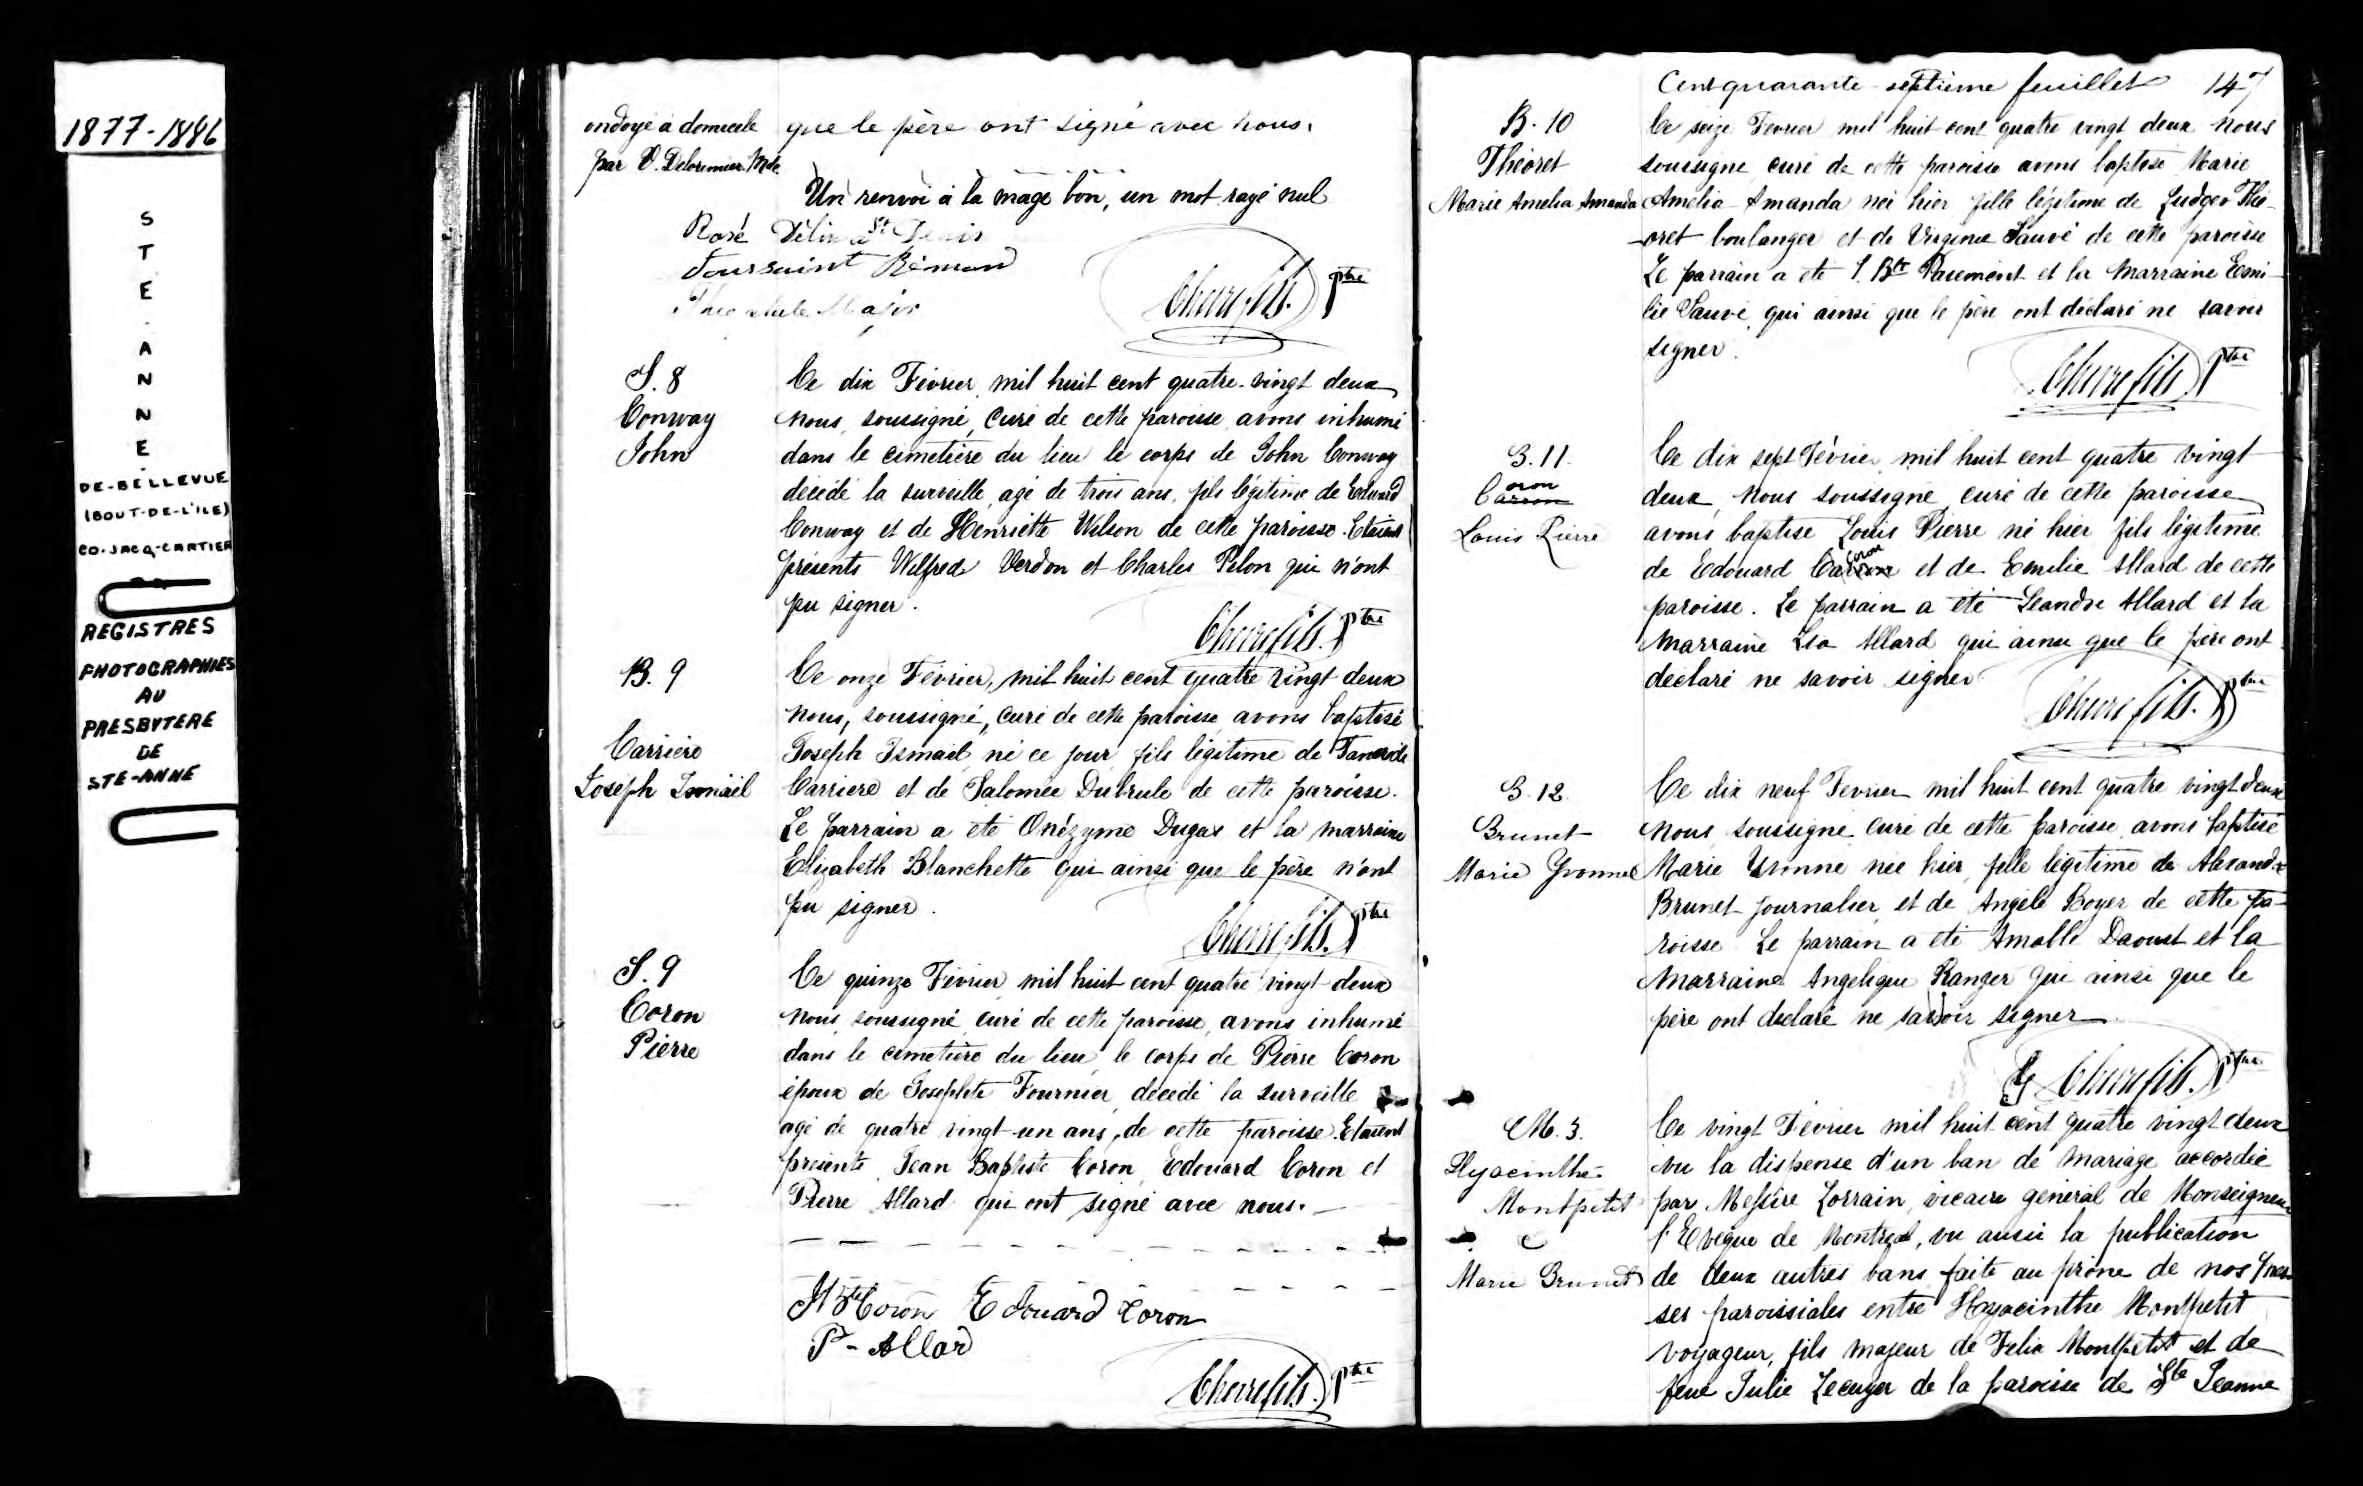 1877-1886
STE-ANNE
DE-BELLEVUE
(BOUT-DE-L'ILE)
CO-JACQ-CARTIER
REGISTRES
PHOTOGRAPHIES
AU
PRESBYTERE
DE
STE-ANNE
ondoyé à domicile
par
que le père ont signé avec nous.
Un renvoi à la marge bon, un mot rayé nul
Toussaint
Major
Ptre
S. 8
Conway
John
Ce dix Février mil huit cent quatre-vingt deux
nous, soussigné, curé de cette paroisse avons inhumé
dans le cimetière du lieu le corps de John Conway
décédé la surveille, agé de trois ans, fils légitime de Eduard
Conway et de Henriette Wilson de cette paroisse. Etaient
présents Wilfred Verdon et Charles Pilon qui n'ont
pu signer.
Ptre
B. 9
Carriere
Joseph Ismaël
Ce onze Février, mil huit cent quatre vingt deux
nous, soussigné, curé de cette paroisse, avons baptisé
Joseph Ismaël né ce jour, fils légitime de Tancrède
Carriere et de Salomée Dubrule de cette paroisse.
Le parrain a été Onézyme Dugas et la marraine
Elizabeth Blanchette qui ainsi que le père n'ont
pu signer.
Ptre
S. 9
Coron
Pierre
Ce quinze Février mil huit cent quatre vingt deux
nous, soussigné, curé de cette paroisse, avons inhumé
dans le cimetière du lieu, le corps de Pierre Coron
époux de Josephte Fournier, décédé la surveille
agé de quatre vingt-un ans, de cette paroisse. Etaient
présents Jean Baptiste Coron, Edouard Coron et
Pierre Allard qui ont signé avec nous.
Coron Edouard Coron
P- Allard
Ptre
Cent quarante-septième feuillet 147
B. 10
Théoret
Marie Amelia Amanda
Ce seize Février mil huit cent quatre vingt deux nous
soussigné curé de cette paroisse avons baptisé Marie
Amelia Amanda née hier fille légitime de Ludger Thé-
-oret boulanger et de Virginie Sauvé de cette paroisse
Le parrain a été J. Bte Paiement et la marraine Emi-
lie Sauvé qui ainsi que le père ont déclaré ne savoir
signer.
Ptre
B. 11.
Coron
Louis Pierre
Ce dix sept Février mil huit cent quatre vingt
deux, nous soussigné curé de cette paroisse
avons baptisé Louis Pierre né hier fils légitime
de Edouard Coron et de Emilie Allard de cette
paroisse. Le parrain a été Leandre Allard et la
marraine Lea Allard qui ainsi que le père ont
déclaré ne savoir signer
Ptre
B. 12.
Brunet
Marie Yvonne
Ce dix neuf Fevrier mil huit cent quatre vingt deux
nous soussigné curé de cette paroisse avons baptisé
Marie Yvonne née hier, fille légitime de Alexandre
Brunet journalier et de Angèle Boyer de cette pa-
roisse Le parrain a été Amable Daoust et la
marraine Angelique Ranger qui ainsi que le
père ont déclaré ne savoir signer
Ptre
M. 3.
Hyacinthe
Montpetit
&
Marie Brunet
Ce vingt Février mil huit cent quatre vingt deux
vu la dispense d'un ban de mariage accordée
par Messire Lorrain, vicaire général de Monseigneur
l'Evêque de Montreal, vu aussi la publication
de deux autres bans faite au prône de nos mes-
ses paroissiales entre Hyacinthe Montpetit
voyageur, fils majeur de Felix Montpetit et de
feue Julie Lecuyer de la paroisse de Ste Jeanne